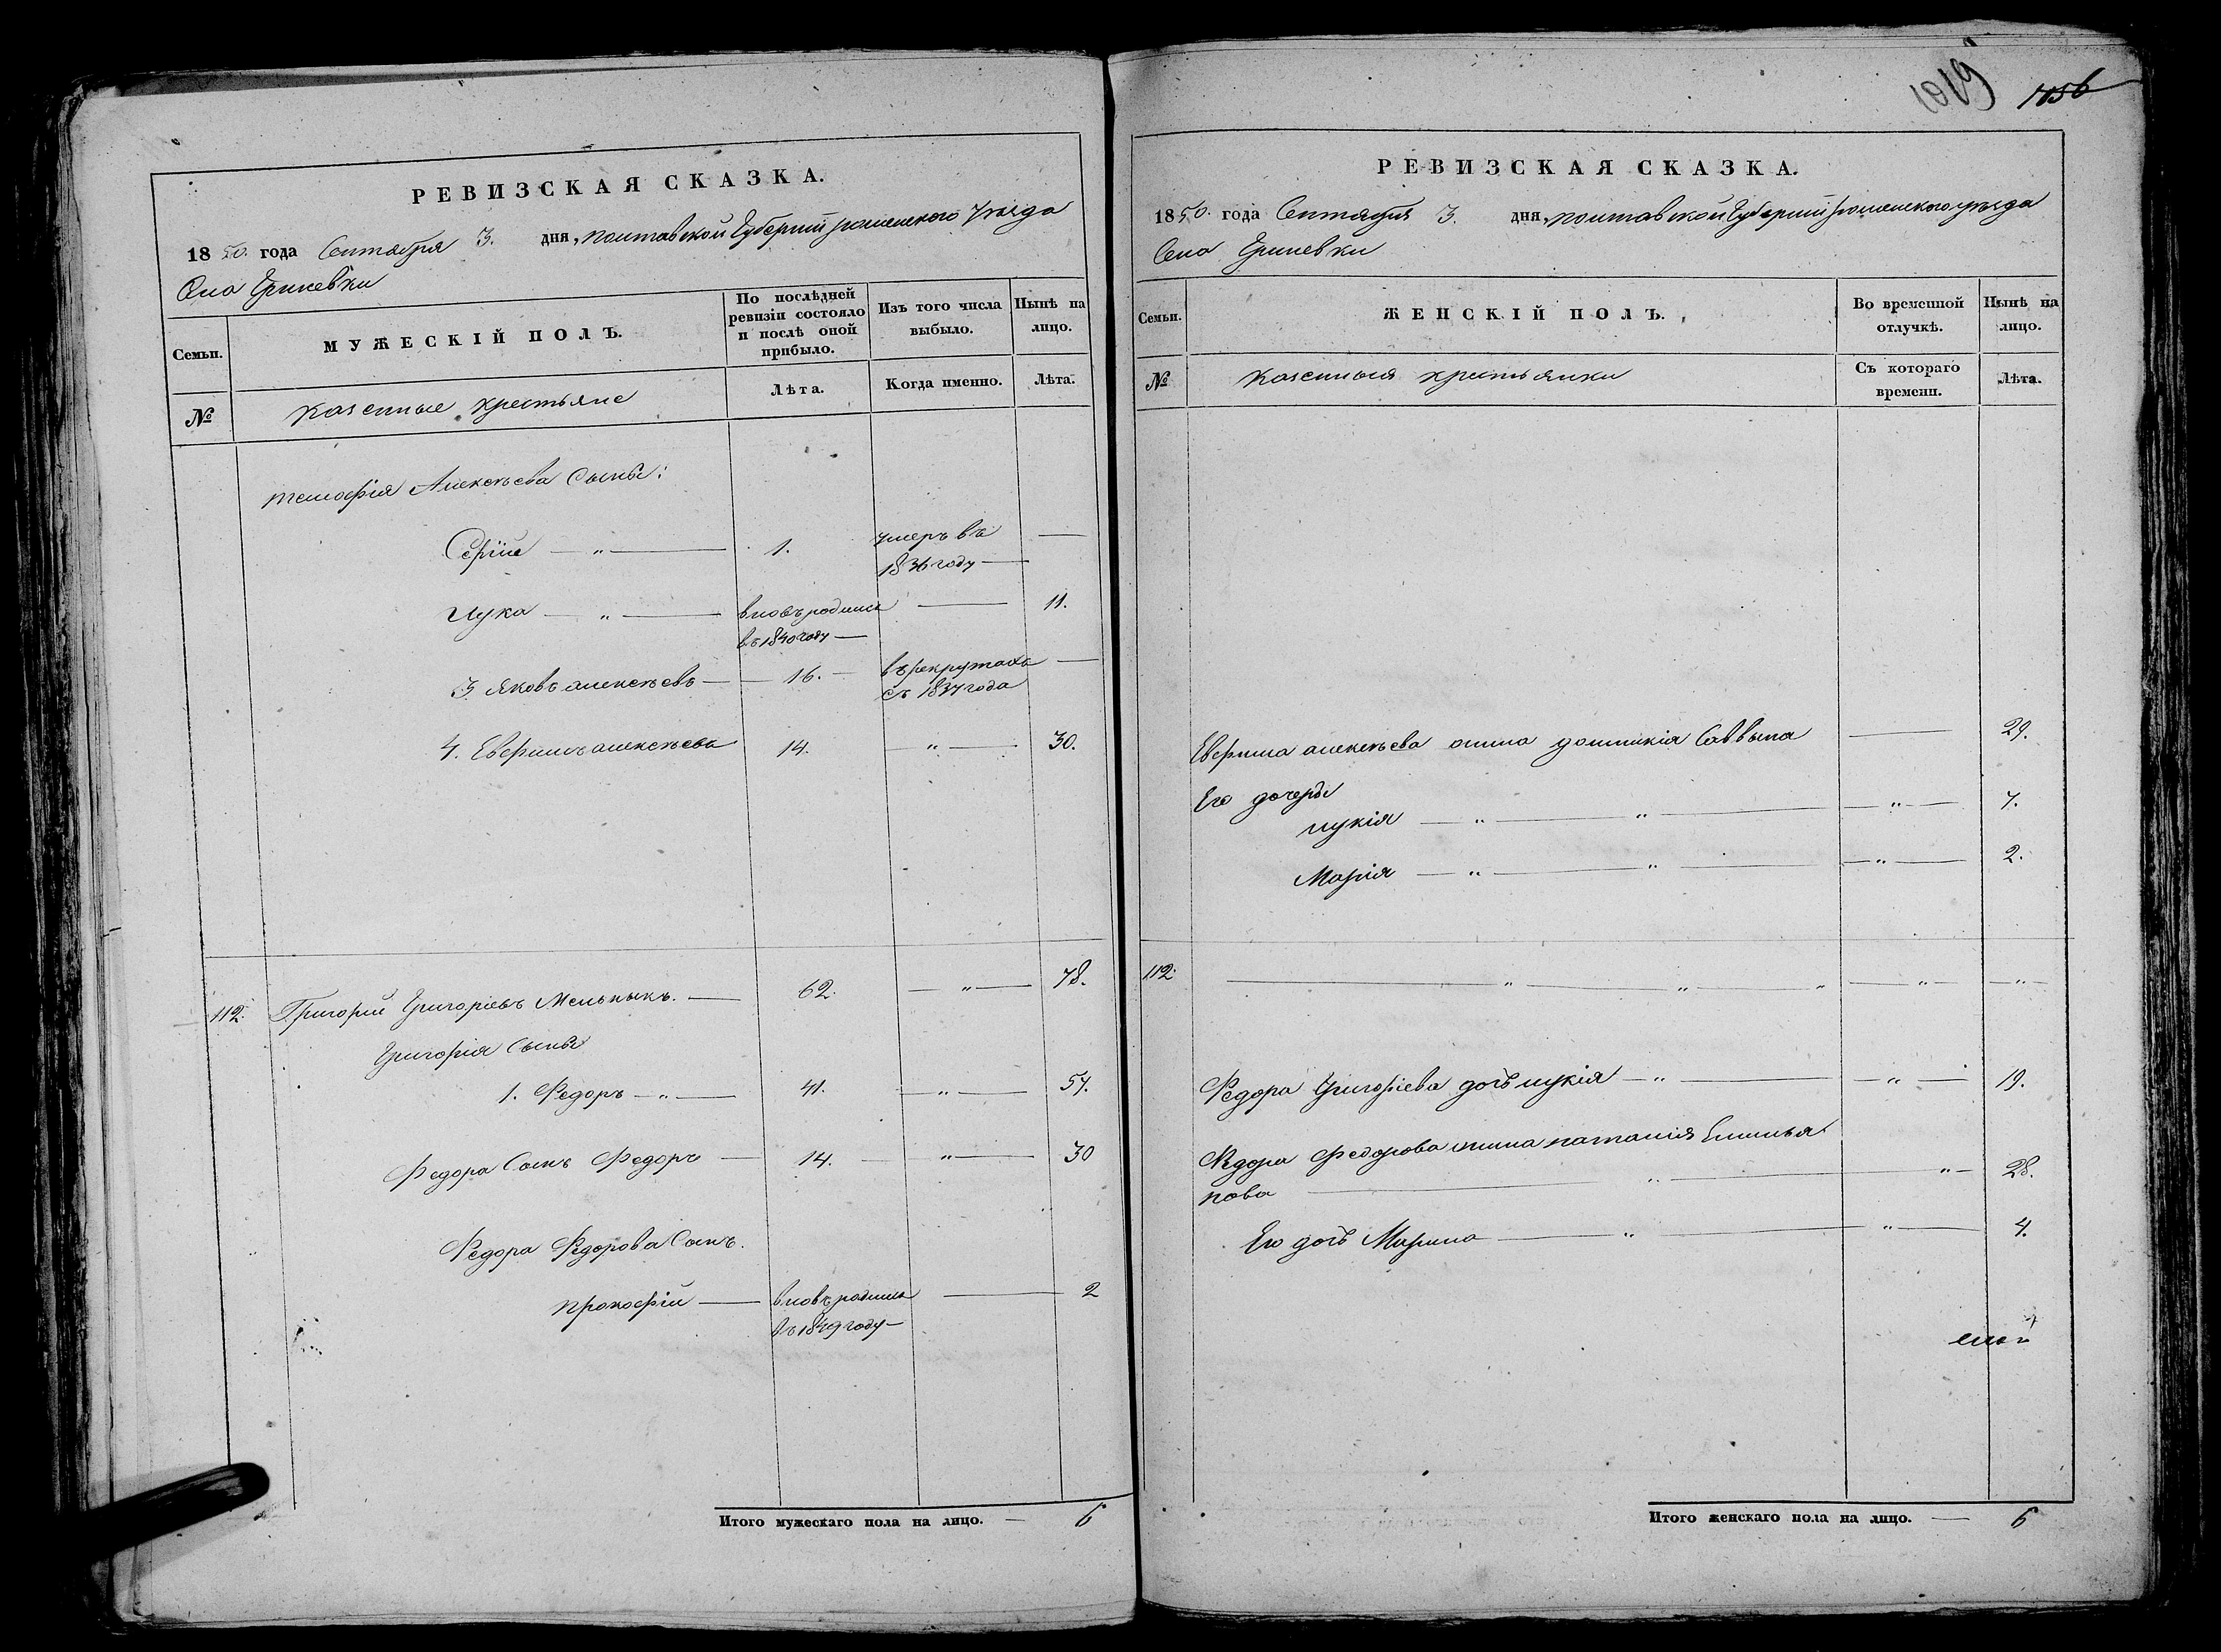 РЕВИЗСКАЯ СКАЗКА.
1850. года Сентября 3. дня, Полтавской Губерніи роменского уѣзда
Села Гриневки
Семьи.
МУЖЕСКІЙ ПОЛЪ.
По послѣдней
ревизіи состояло
и послѣ оной
прибыло.
Изъ того числа
выбыло.
Нынѣ на
лицо.
№
казенные крестьяне
Лѣта.
Когда именно.
Лѣта.
Тимофія Алексѣева Сыны:
Сергій — „ — 1. умеръ въ —
1836 году —
Лука — „ — вновь родился — 11.
въ 1840 году —
3. Яковъ алексѣевъ — 16. — въ рекрутахъ —
съ 1837 года
4. алексѣевъ 14. „ — 30.
112. Григорій Григоріевъ Мельныкъ. — 62. — „ — 78.
Григорія Сыны
1. Федоръ — „ — 41. — „ — 57.
Федора Сынъ Федоръ — 14. — „ — 30
Федора Федорова Сынъ.
Прокофій — вновь родился — 2
въ 1849 году —
Итого мужескаго пола на лицо. — 6
1019 1156
РЕВИЗСКАЯ СКАЗКА.
1850. года Сентября 3. дня, Полтавской Губерніи роменского уѣзда
Села Гриневки
Семьи.
ЖЕНСКІЙ ПОЛЪ.
Во временной
отлучкѣ.
Нынѣ на
лицо.
№
казенныя крестьянки
Съ котораго
времени.
Лѣта.
алексѣева жина домникія Саввына — 29.
Его дочеры
лукія — „ — „ — „ — 7.
Марія — „ — „ — „ — 2.
112. — „ — „ — „ — „ — „ —
Федора Григоріева дочь лукія — „ — „ — 19.
Федора Федорова жина наталія Емилья
нова — „ — „ — 28.
Его дочь Марина — „ — „ — 4.
Итого женскаго пола на лицо. — 6